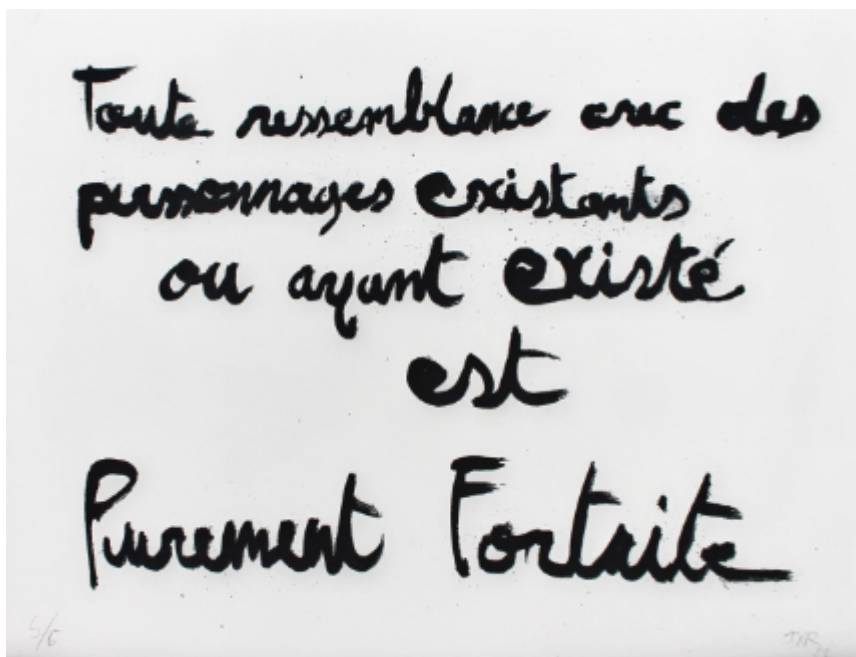 Toute ressemblance avec des
personnages existants
ou ayant existé
est
Purement Fortuite